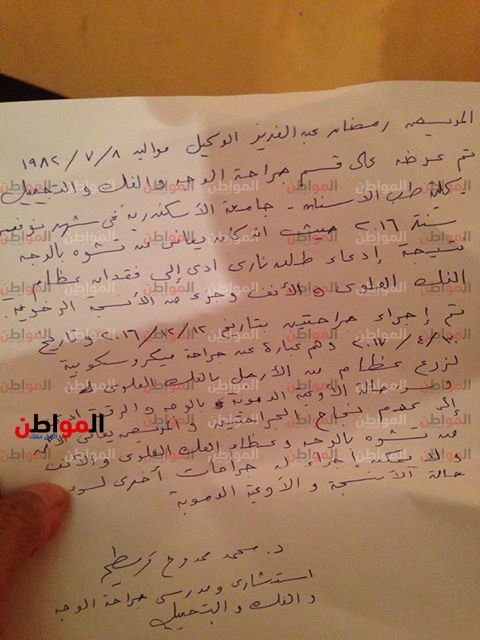 المريض رمضان عبد العزيز الوكيل مواليد ١٩٨٢/٧/٨
تم عرضه على قسم جراحة الوجه والفك والتجميل
بكلية طب الأسنان - جامعة الأسكندرية فى شهر نوفمبر
سنة ٢٠١٦ حيث انه كان يعانى من تشوه بالوجه
نتيجة إدعاء طلق نارى ادى إلى فقدان عظام
الفك العلوى والأنف وجزء من الأنسجة الرخوة.
تم إجراء جراحتين بتاريخ ٢٠١٦/١٢/١٢ وتاريخ
٢٠١٧/٤/ وهم عبارة عن جراحة ميكروسكوبية
لزرع عظام من الأرجل بالفك العلوى
حالة الأوعية الدموية بالوجه و الرقبة
إلى عدم نجاح الجراحتين و المريض يعانى
من تشوه بالوجه وعظام الفك العلوى والأنف
ولا يمكن إجراء له جراحات أخرى لسوء
حالة الأنسجة و الأوعية الدموية
د. محمد ممدوح
استشارى ومدرس جراحة الوجه
والفك والتجميل
المواطن